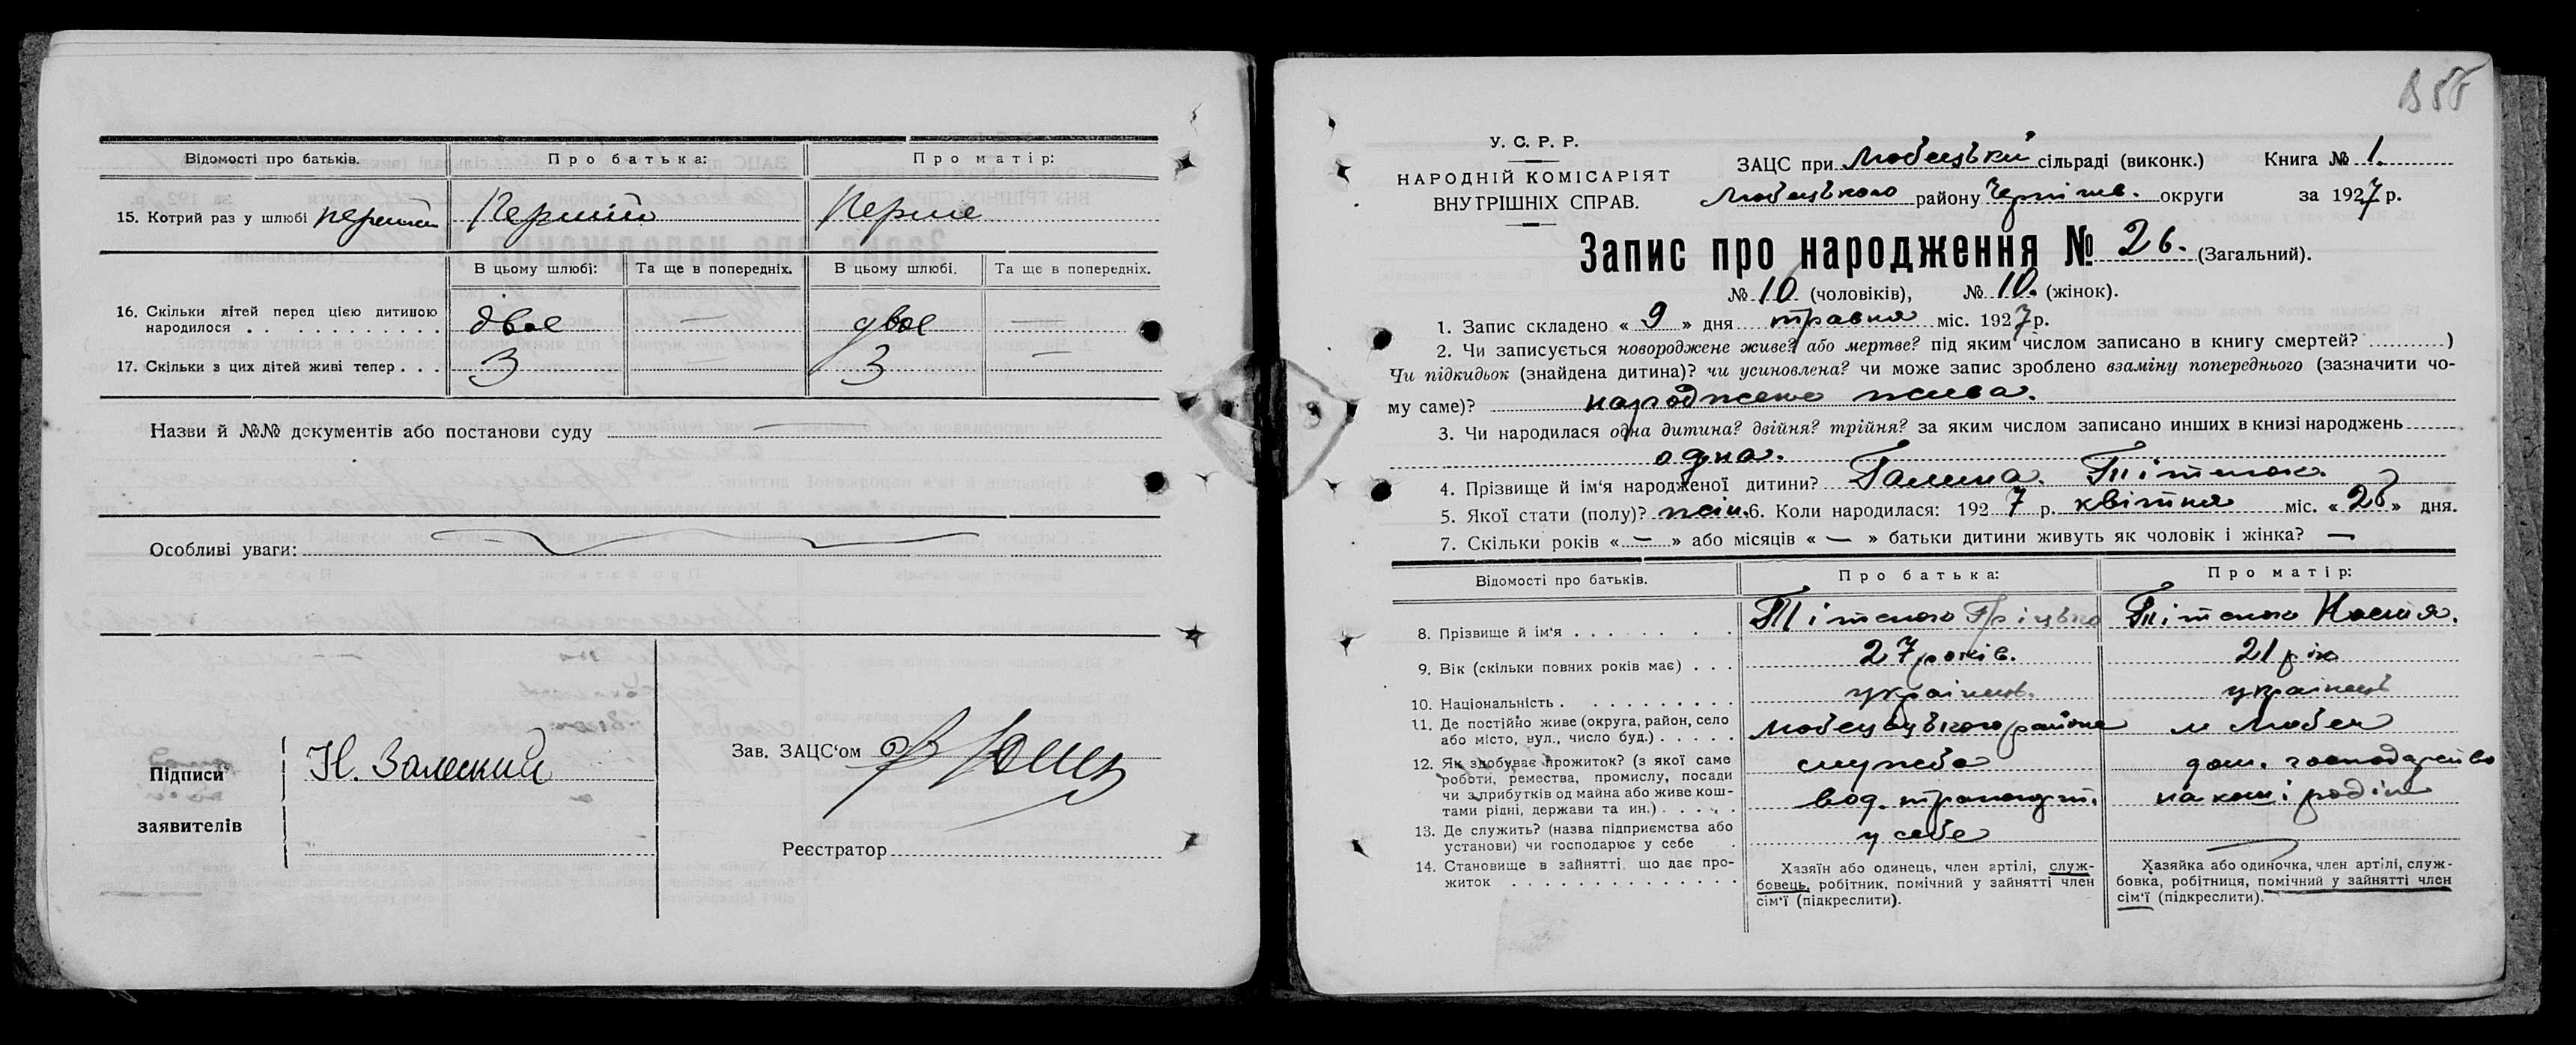 Відомості про батьків. Про батька: Про матір:
15. Котрий раз у шлюбі перший Перший Перше
В цьому шлюбі: Та ще в попередніх. В цьому шлюбі. Та ще в попередніх.
16. Скільки дітей перед цією дитиною
народилося . . . . . . . . . . двоє — двоє —
17. Скільки з цих дітей живі тепер . . . 3 — 3 —
Назви й №№ документів або постанови суду —
Особливі уваги:
Підписи
заявителів
Н. Залєский
Зав. ЗАЦС‘ом
Реєстратор
В 58
У. С. Р. Р.
НАРОДНІЙ КОМІСАРІЯТ
ВНУТРІШНІХ СПРАВ.
ЗАЦС при Любецькій сільраді (виконк.) Книга № 1.
Любецького району Черніг. округи за 1927 р.
Запис про народження № 26. (Загальний).
№ 10 (чоловіків), № 10. (жінок).
1. Запис складено « 9 » дня травня міс. 1927 р.
2. Чи записується новороджене живе? або мертве? під яким числом записано в книгу смертей? )
Чи підкидьок (знайдена дитина)? чи усиновлена? чи може запис зроблено взаміну попереднього (зазначити чо-
му саме)? народжене жива.
3. Чи народилася одна дитина? двійня? трійня? за яким числом записано инших в книзі народжень
одна.
4. Прізвище й ім‘я народженої дитини? Галина
5. Якої статі (полу)? жін. 6. Коли народилася: 1927 р. квітня міс. « 28 » дня.
7. Скільки років « — » або місяців « — » батьки дитини живуть як чоловік і жінка? —
Відомості про батьків. Про батька: Про матір:
8. Прізвище й ім‘я . . . . . . . Грицько Настя.
9. Вік (скільки повних років має) . . . 27 років. 21 рік
10. Національність . . . . . . . . . . українець. українець
11. Де постійно живе (округа, район, село
або місто, вул., число буд.) . . . . . району м Любеч
12. Як здобуває прожиток? (з якої саме
роботи, ремества, промислу, посади
чи з прибутків од майна або живе кош-
тами рідні, держави та ин.) . . . . служба дом. господарство
вод. транспорт. на кош і родін
13. Де служить? (назва підприємства або
установи) чи господарює у себе . у себе
14. Становище в зайнятті, що дає про-
житок . . . . . . . . . . . . . . .
Хазяїн або одинець, член артілі, служ-
бовець, робітник, помічний у зайнятті член
сім‘ї (підкреслити).
Хазяйка або одиночка, член артілі, служ-
бовка, робітниця, помічний у зайнятті член
сім‘ї (підкреслити).